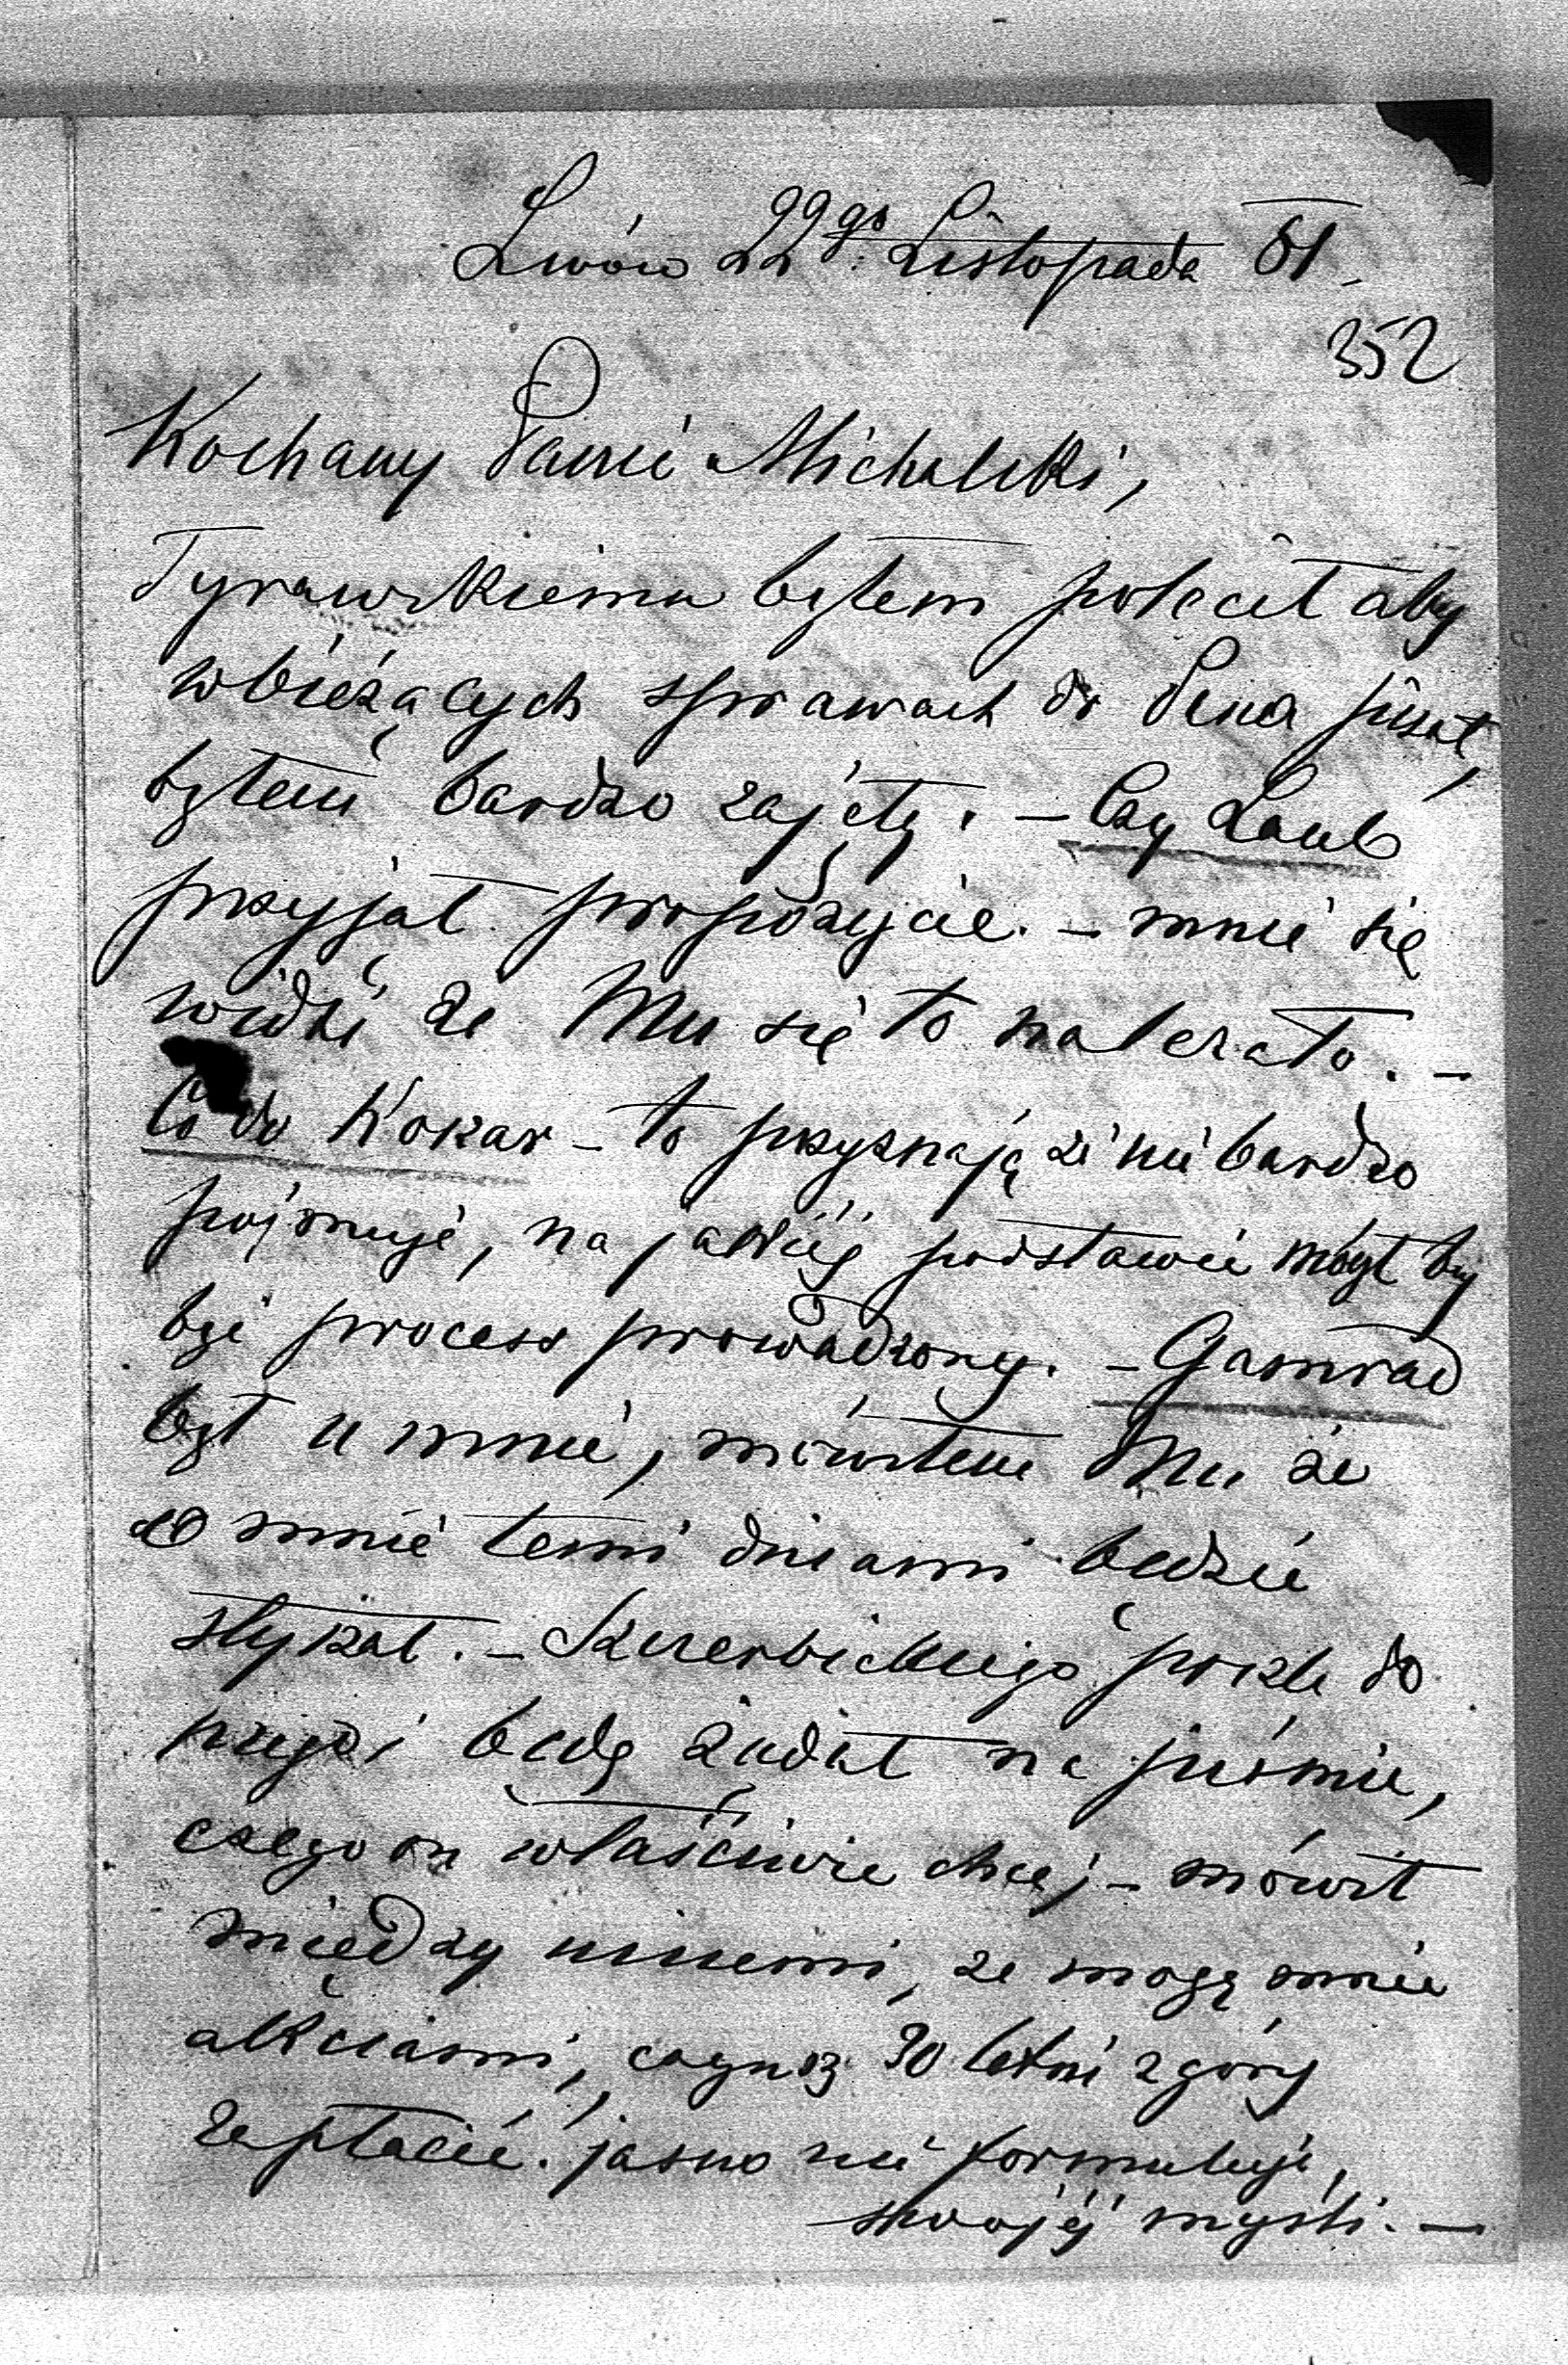 Lwów 22go Listopada 81
352
Kochany Panie Michalski,
Tyrawskiemu byłem polecił aby
w bieżących sprawach do Pana pisał,
byłem bardzo zajęty. – Czy Laub
przyjął propozycie. – mnie się
widzi że Mu się to należało. –
Co do Kokar – to przyznają że nie bardzo
pojmuje, na jakiéj podstawie mógł by
być process prowadzony. – Gamrad
był u mnie, mówiłem Mu że
o mnie temi dniami będzie
słyszał. – poszlę do
niego i będę żądał na piśmie,
czego on właściwie chce; – mówił
między innemi, że mogą mnie
akciami, czynsz 30 letni z góry
zapłacić. jasno nie formułuje,
swojéj myśli. –